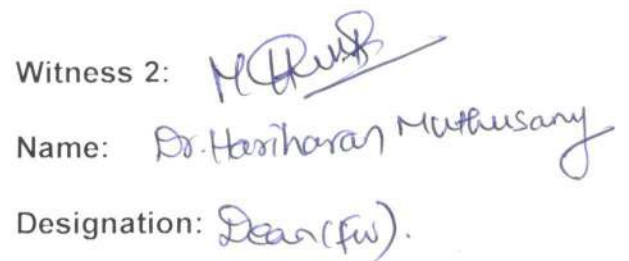 Witness 2:
Name: Dr. Hariharan Muthusamy
Designation: Dean (FW).